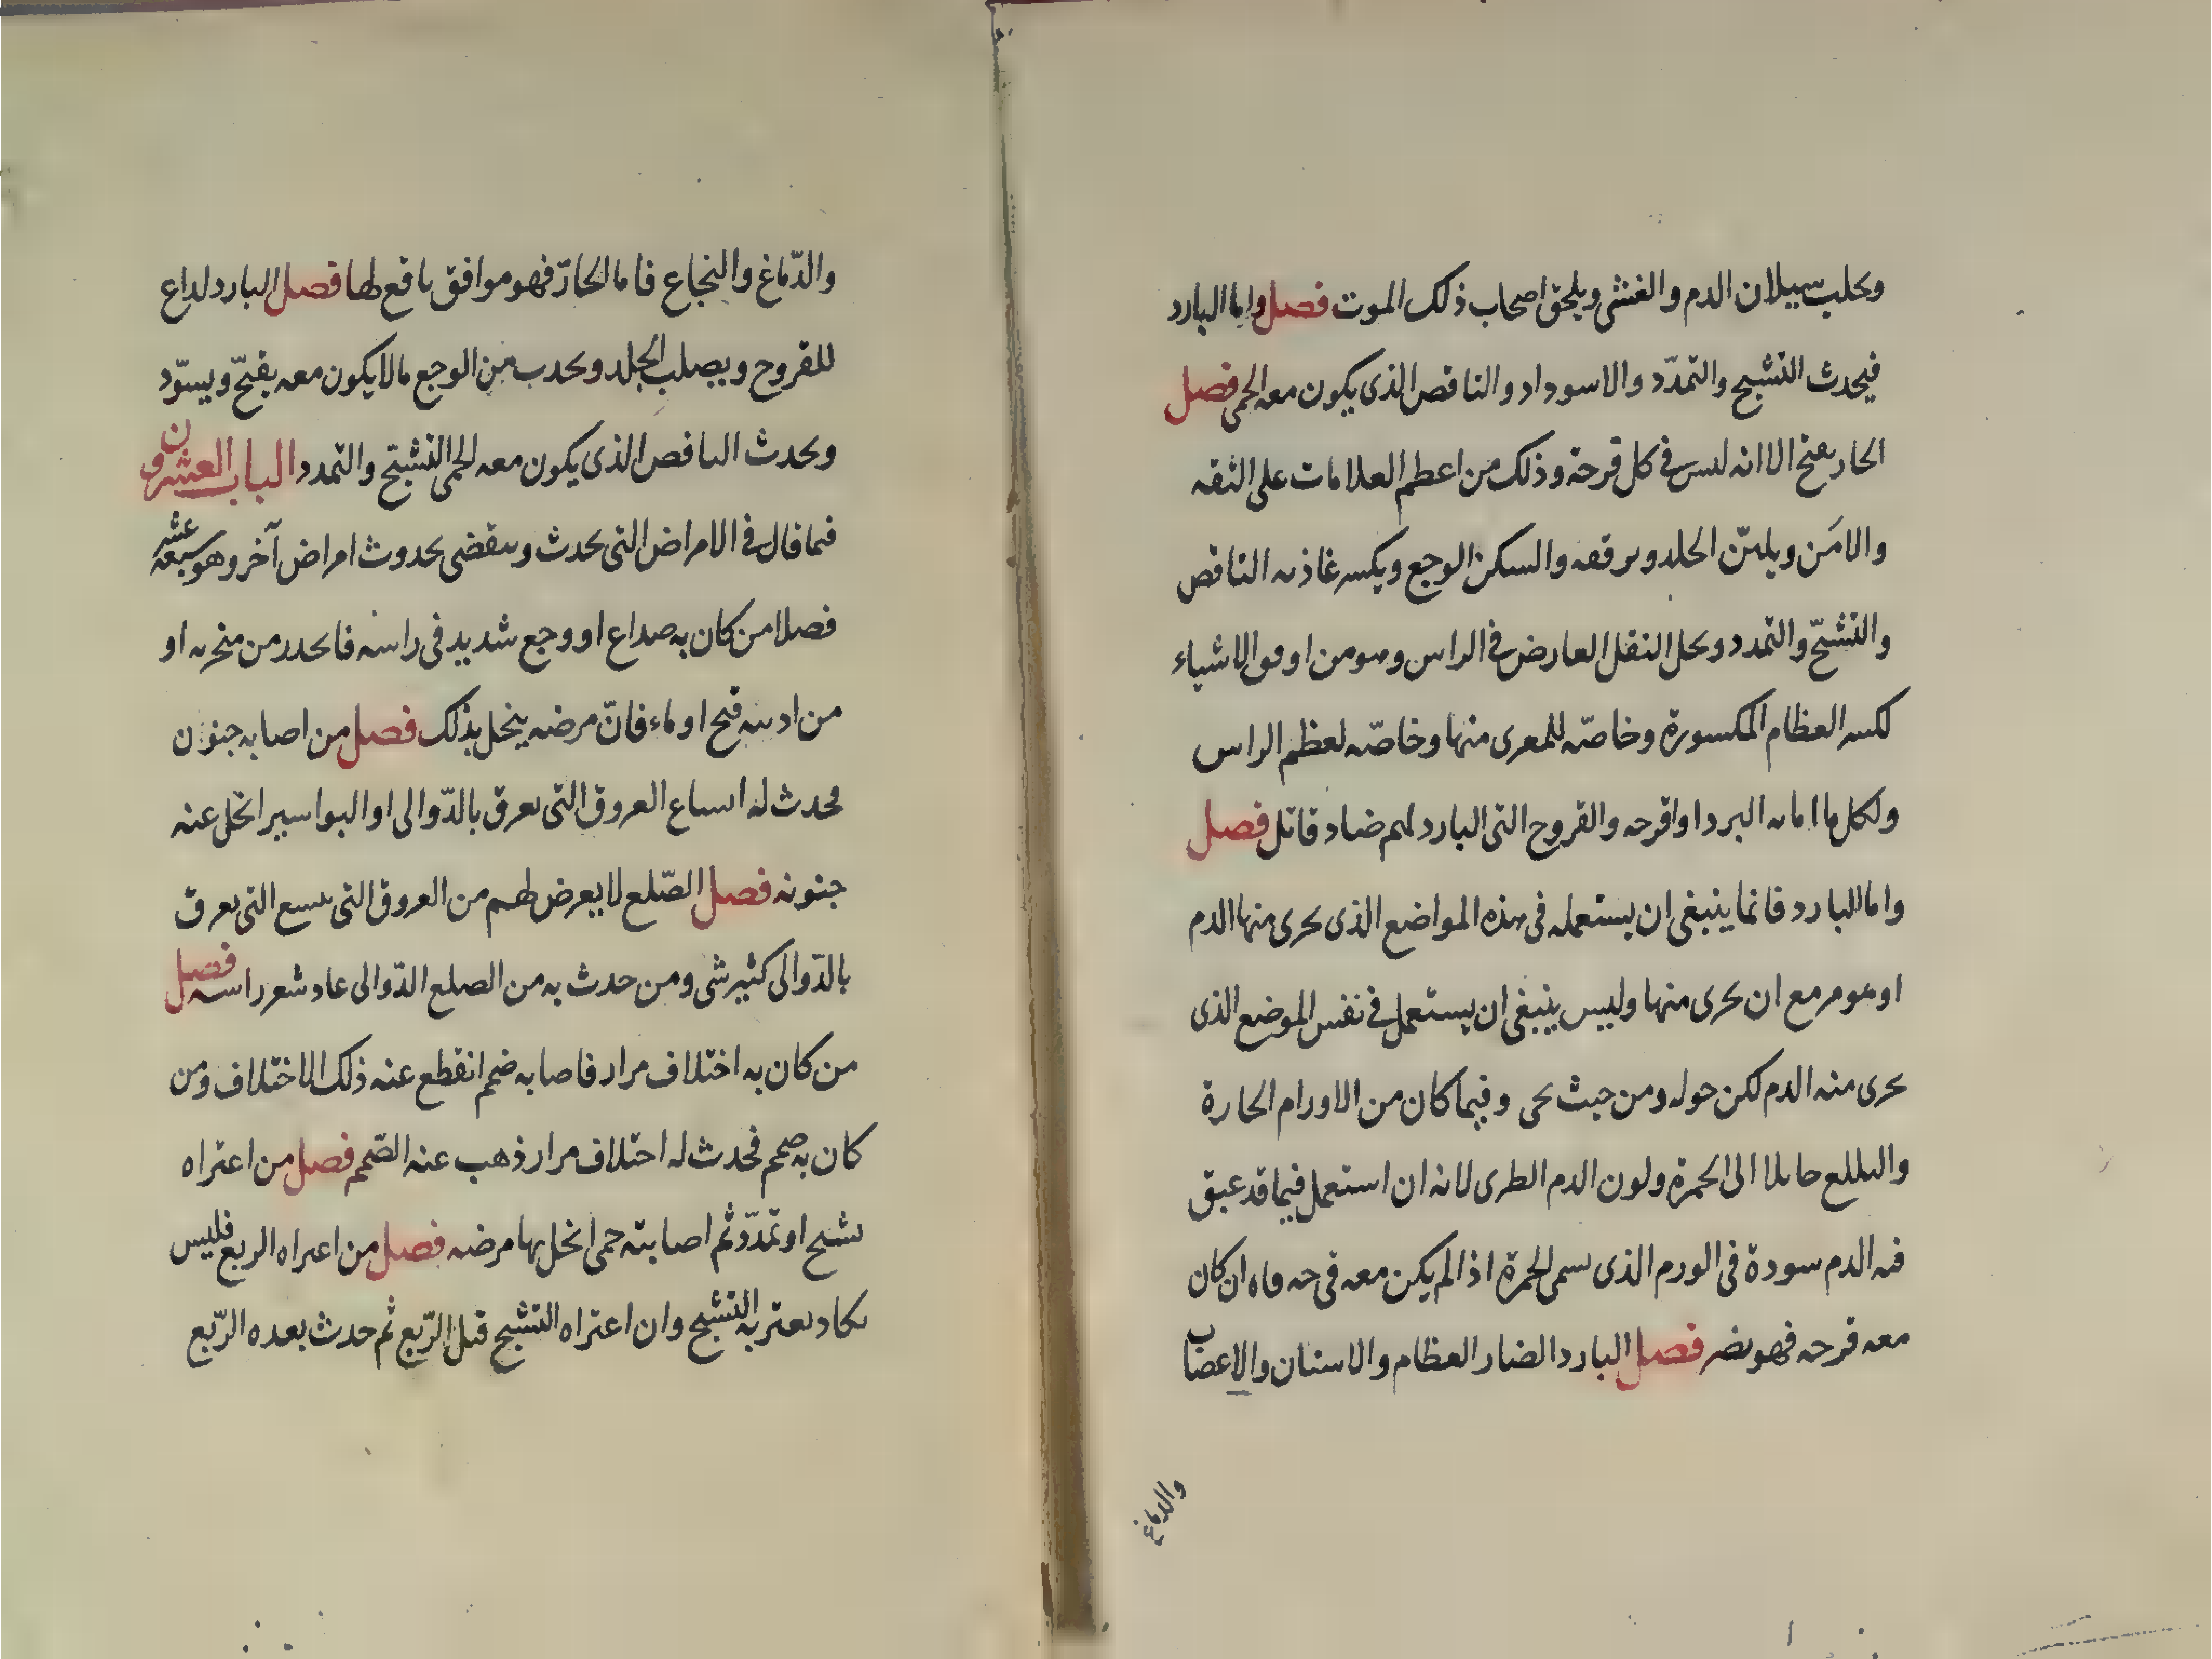 ويحلب سيلان الدم والغشى ويلحق اصحاب ذلك الموت فصل واما البارد
فيحدث التشبح والتمدّد والاسوداد والنافص الذى يكون معه الحمى فصل
الحار يفتح الا انه ليس فى كل قرحة وذلك من اعظم العلامات على الثقه
والامن ويلين الجلد ويرققه والسكن الوجع ويكسر النافص
والتشبّح والتمدد ويحل الثقل العارض فى الراس وهو من اوفق الاشياء
لكسر العظام المكسورة وخاصّه للمعرى منها وخاصّه لعظم الراس
ولكل ما اماته البرد او اقرحه والقروح التى البارد لهم ضاد قاتل فصل
واما البارد فانما ينبغى ان يستعمله فى هذه المواضع الذى يجرى منها الدم
او هو مزمع ان يجرى منها وليس ينبغى ان يستعمل فى نفس الموضع الذى
يجرى منه الدم لكن حوله ومن حيث يجى وفيما كان من الاورام الحارة
مايلا الى الحمرة ولون الدم الطرى لانه ان استعمل فيما قد عبق
فيه الدم سودة فى الورم الذى يسمى الحمرة اذا لم يكن معه قرحه ان كان
معه قرحه فهو يضر فصل البارد الضار العظام والاسنان والاعصاب
والدماغ
والدّماغ والنخاع فاما الحارّ فهو موافق نافع لها فصل البارد لداع
للقروح ويصلب الجلد ويحدث من الوجع مالا يكون معه يقيح ويسوّد
ويحدث النافص الذى يكون معه الحمى التشبّح والتمدد الباب العشرون
فيما قال فى الامراض التى تحدث وينقضى بحدوث امراض آخر وهو سبعة عشر
فصلا من كان به صداع او وجع شديد فى راسه فانحدر من منخريه او
من اذنيه قيح او ماء فانّ مرضه ينحل بذلك فصل من اصابه جنون
فحدث له اتساع العروق التى تعرق بالدّوالى او البواسير انحل عنه
جنونه فصل الصّلع لا يعرض لهم من العروق التى تتسع التى تعرق
بالدّوالى كثير شى ومن حدث به من الصلع الدّوالى عاد شعر راسه فصل
من كان به اختلاف مرار فاصابه صمم انقطع عنه ذلك الاختلاف ومن
كان به صمم فحدث له اختلاف مرار ذهب عنه الصّمم فصل من اعتراه
تشبح او تمدّد ثم اصابته حمى انحل بها مرضه فصل من اعتراه الربع فليس
يكاد يعتريه التشبح وان اعتراه التشبح قبل الرّبع ثم حدث بعده الرّبع